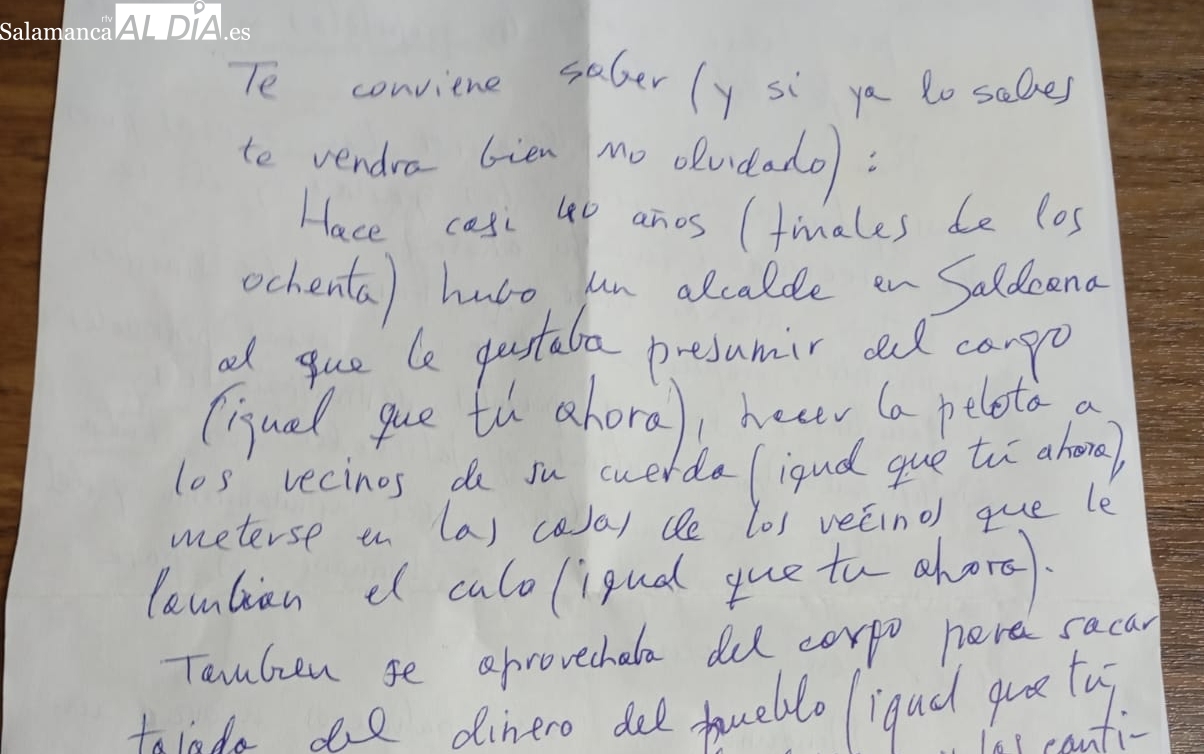 Salamanca rtv AL DÍA .es
Te conviene saber (y si ya lo sabes
te vendra bien no olvidado) :
Hace casi 40 años (finales de los
ochenta) hubo un alcalde en Saldeana
al que le gustaba presumir del cargo
(igual que tú ahora), hacer la pelota a
los vecinos de su cuerda (igual que tú ahora),
meterse en las casas de los vecinos que le
lambian el culo (igual que tu ahora).
Tambien se aprovechaba del cargo para sacar
tajada del dinero del pueblo (igual que tú,
las canti-